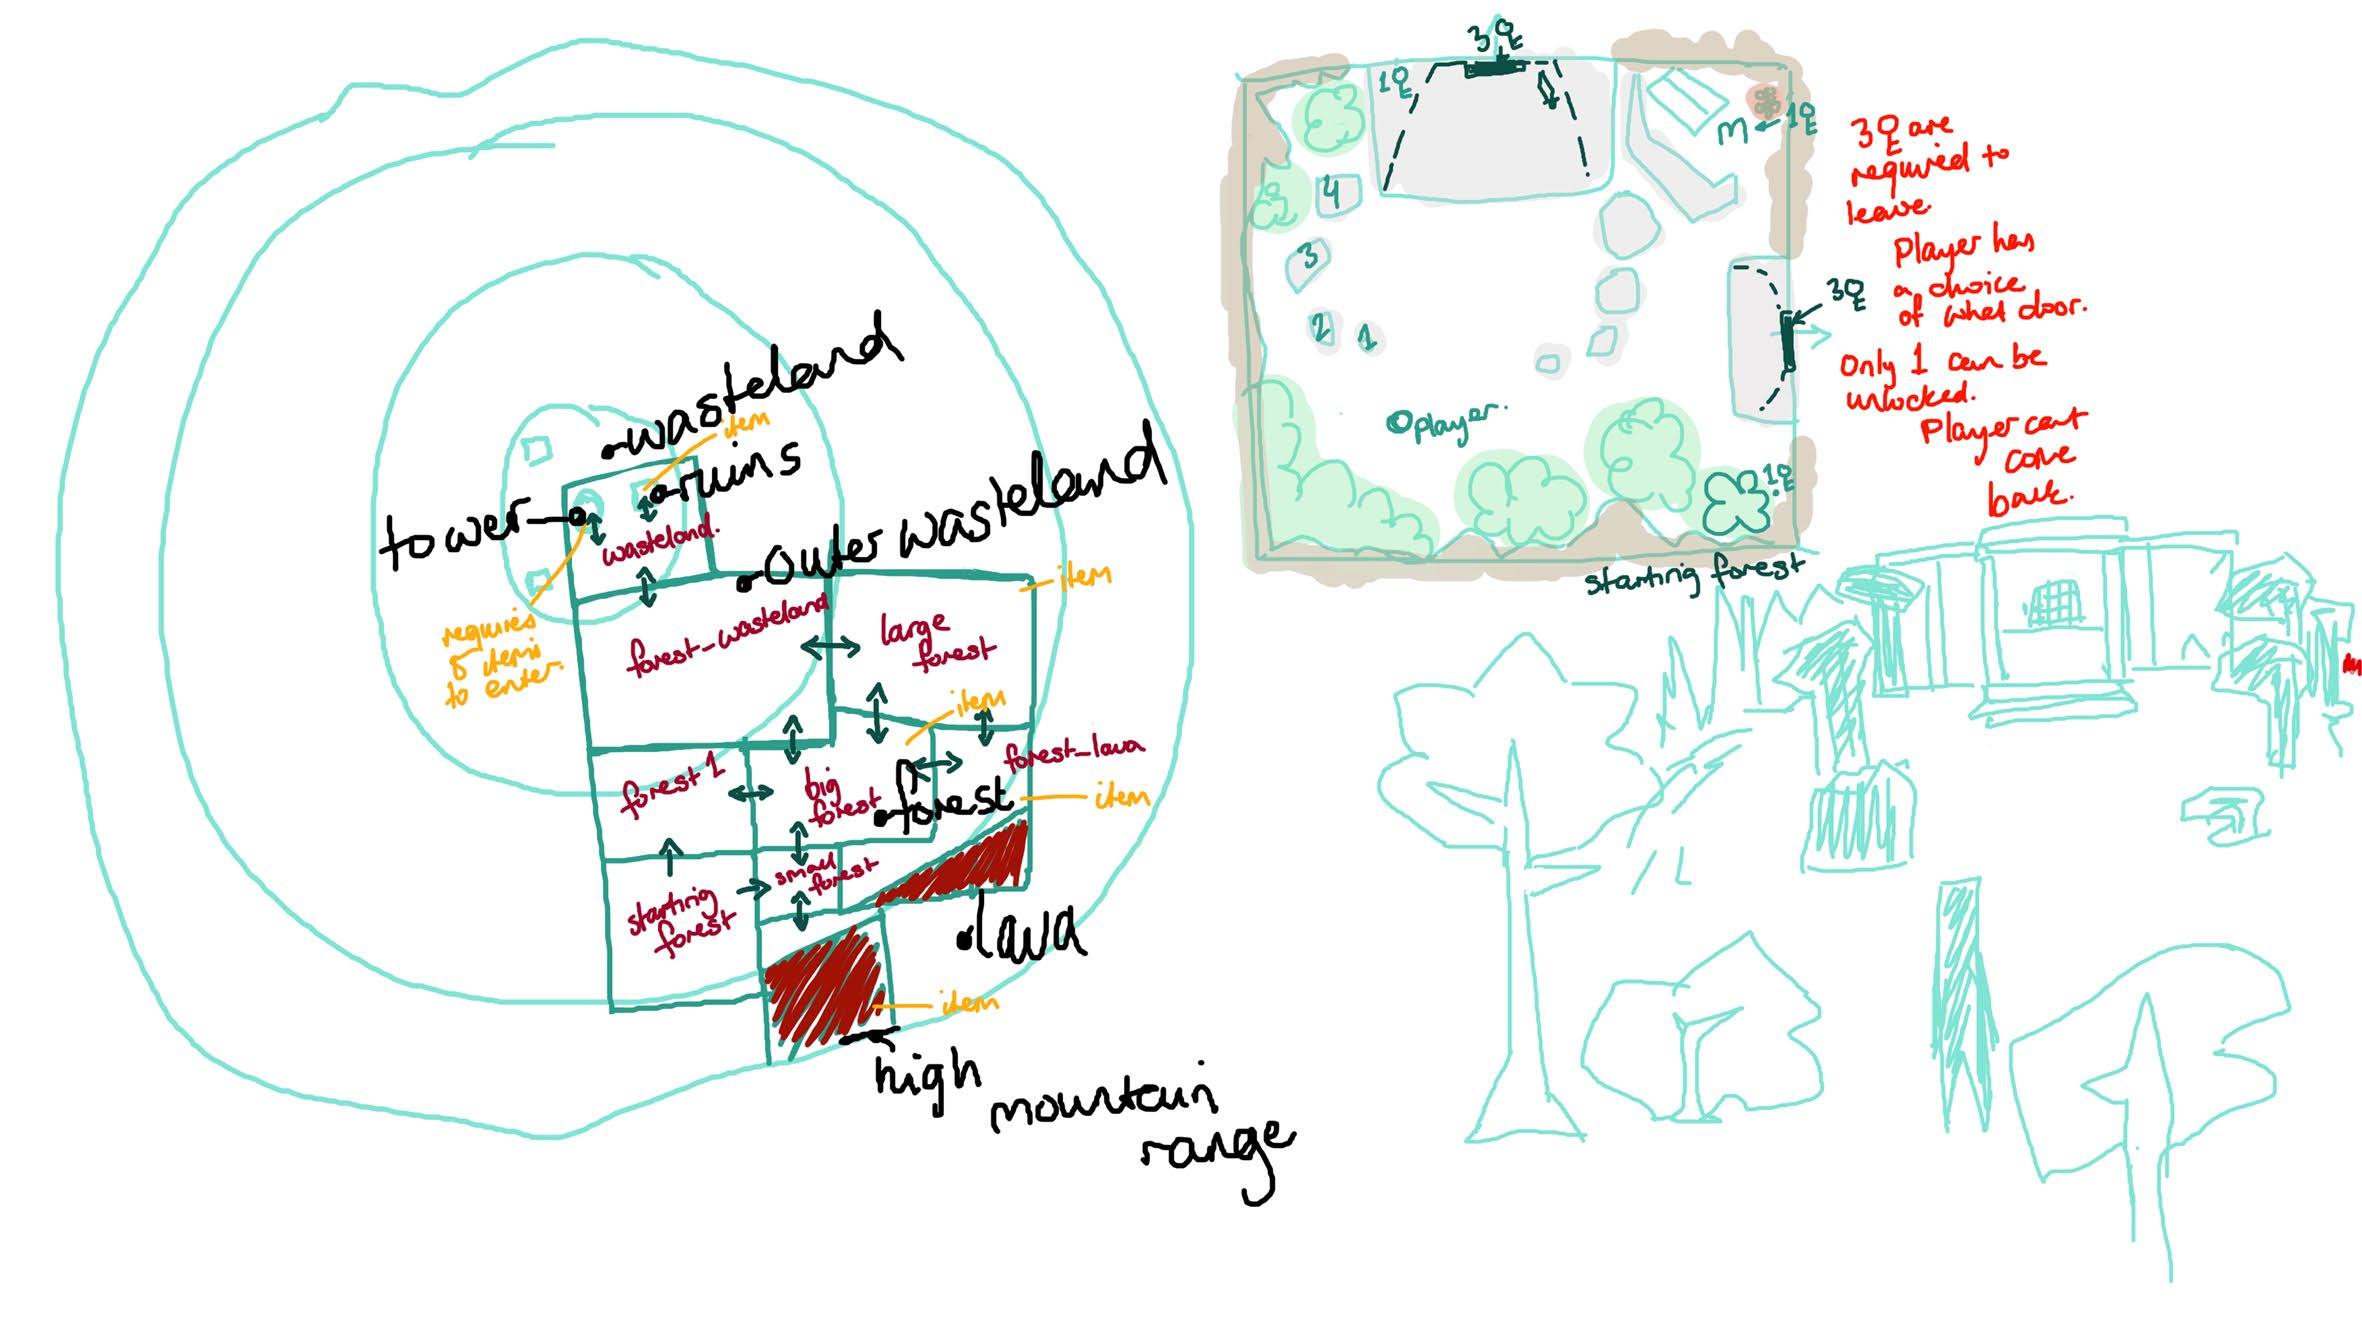 wasteland
item
ruins
tower
wasteland.
outer wasteland
item
requires
5 items
to enter.
forest-wasteland
large
forest
item
forest 1
big
forest
forest
forest-lava
item
starting
forest
small
forest
lava
item
high
mountain
range
3
1
1
M
4
3
2
1
3
player.
1
starting forest
3 are
required to
leave.
Player has
a choice
of what door.
Only 1 can be
unlocked.
Player cant
come
back.